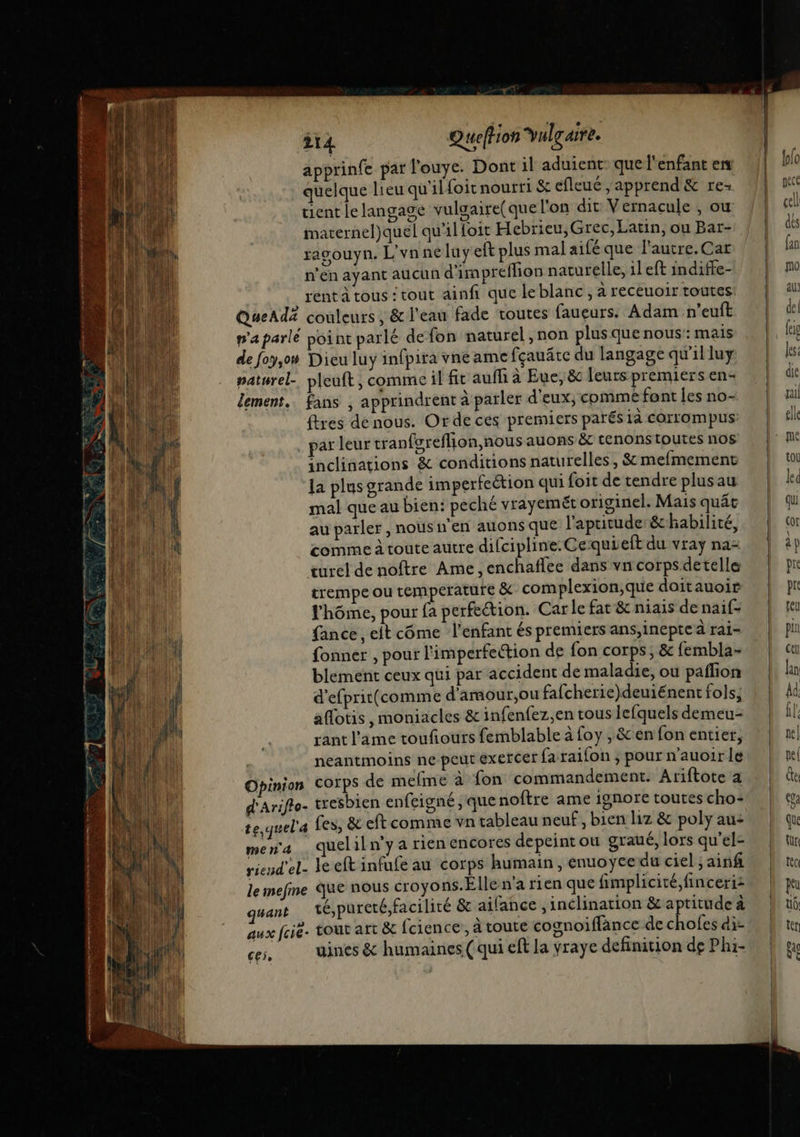 214 Queſtion vulgaire.
apprinſe par l'ouye. Dont il aduient que l'enfant en
quelque lieu qu'il ſoit nourri & eſleué, apprend & re-
tient le langage vulgaire (que l'on dit Vernacule, ou
maternel) quel qu'il ſoit Hebrieu, Grec, Latin, ou Bar-
ragouyn. L'vn ne luy eſt plus mal aiſé que l'autre. Car
n'en ayant aucun d'impreſſion naturelle, il eſt indiffe-
rent à tous: tout ainſi que le blanc, à receuoir toutes
Que Adã couleurs, & l'eau fade toutes ſaueurs. Adam n'euſt
n'a parlé point parlé de ſon naturel, non plus que nous: mais
de ſoy, ou Dieu luy inſpira vne ame ſçauãte du langage qu'il luy
naturel- pleuſt, comme il fit auſſi à Eue, & leurs premiers en-
lement. fans, apprindrent à parler d'eux, comme font les no-
ſtres de nous. Or de ces premiers parẽs ià corrompus
par leur tranſgreſſion, nous auons & tenons toutes nos
inclinations & conditions naturelles, & meſmement
la plus grande imperfection qui ſoit de tendre plus au
mal que au bien: peché vrayemẽt originel. Mais quãt
au parler, nous n'en auons que l'aptitude & habilité,
comme à toute autre diſcipline. Ce qui eſt du vray na-
turel de noſtre Ame, enchaſſee dans vn corps de telle
trempe ou temperature & complexion, que doit auoir
l'hõme, pour ſa perfection. Car le fat & niais de naiſ-
ſance, eſt cõme l'enfant és premiers ans, inepte à rai-
ſonner, pour l'imperfection de ſon corps, & ſembla-
blement ceux qui par accident de maladie, ou paſſion
d'eſprit (comme d'amour, ou faſcherie) deuiẽnent fols,
aſſotis, moniacles & inſenſez, en tous leſquels demeu-
rant l'ame touſiours ſemblable à ſoy, & en ſon entier,
neantmoins ne peut exercer ſa raiſon, pour n'auoir le
Opinion corps de meſme à ſon commandement. Ariſtote a
d'Ariſto- tresbien enſeigné, que noſtre ame ignore toutes cho-
te, quel'a ſes, & eſt comme vn tableau neuf, bien liz & poly au-
me n'a quel il n'y a rien encores depeint ou graué, lors qu'el-
riend'el- le eſt infuſe au corps humain, enuoyee du ciel, ainſi
le meſme que nous croyons. Elle n'a rien que ſimplicité, ſinceri-
quant té, pureté, facilité & aiſance, inclination & aptitude à
aux ſciẽ- tout art & ſcience, à toute cognoiſſance de choſes di-
ces. uines & humaines (qui eſt la vraye definition de Phi-